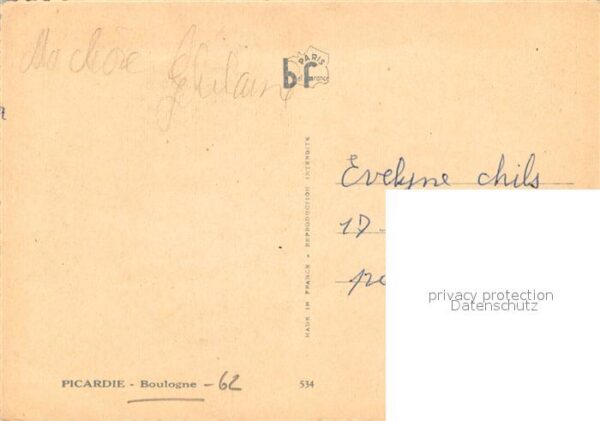 Ma chère
Ghislaine
PARIS
bf
france
MADE IN FRANCE - REPRODUCTION INTERDITE
Evelyne chils
17
pe
privacy protection
Datenschutz
PICARDIE - Boulogne - 62
534